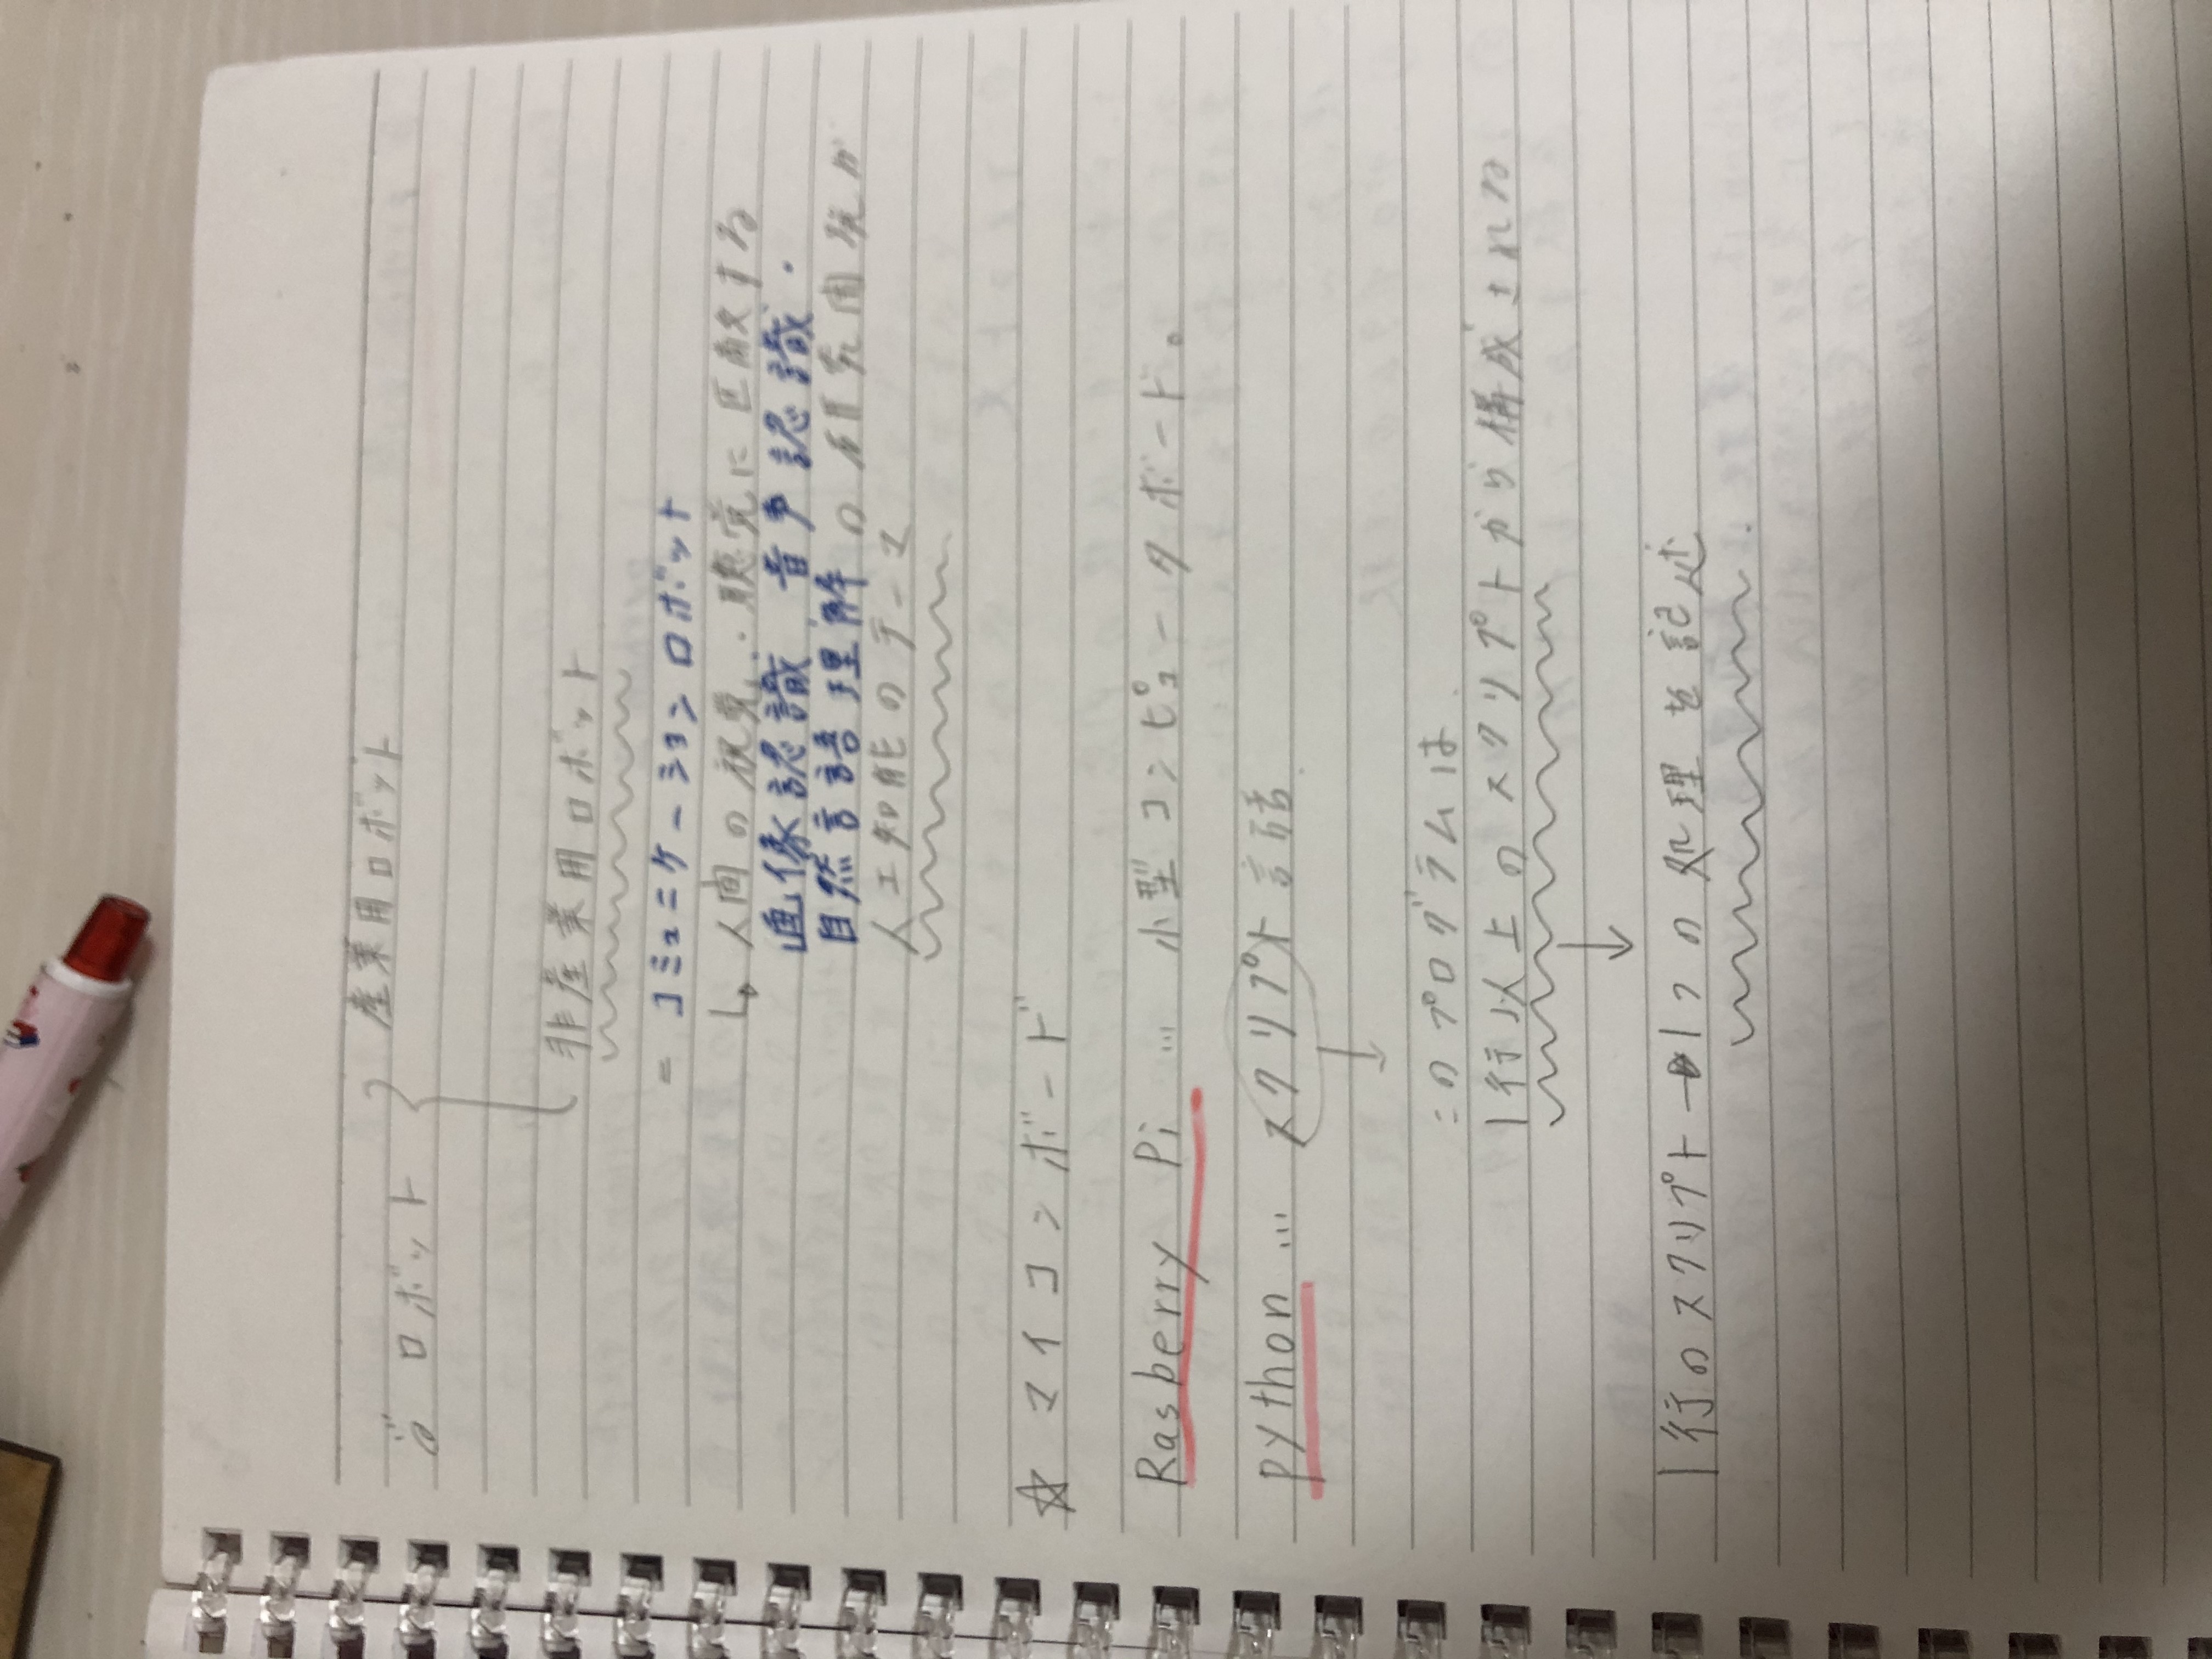 ロボット
産業用ロボット
非産業用ロボット
= コミュニケーションロボット
↳ 人間の視覚・聴覚に匹敵する
画像認識・音声認識・
自然言語理解の研究開発が
人工知能のテーマ
☆ マイコンボード
Rasberry Pi … 小型コンピュータボード。
python … スクリプト言語
↓
このプログラムは
1行以上のスクリプトから構成される
↓
1行のスクリプト→1つの処理を記述